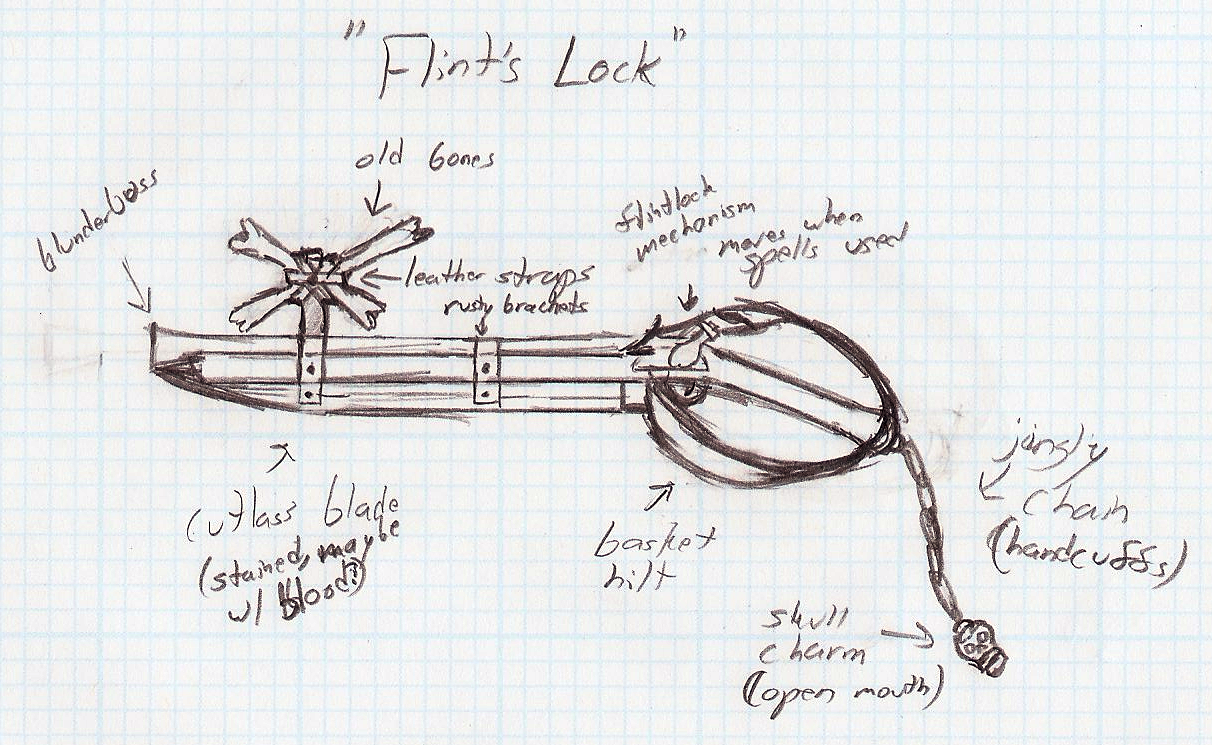 "Flint's Lock"
old bones
blunderbuss
flintlock
mechanism
moves when
spells used
leather straps
rusty brackets
cutlass blade
(stained, maybe
w/ blood?)
basket
hilt
jingly
chain
(handcuffs)
skull
charm
(open mouth)